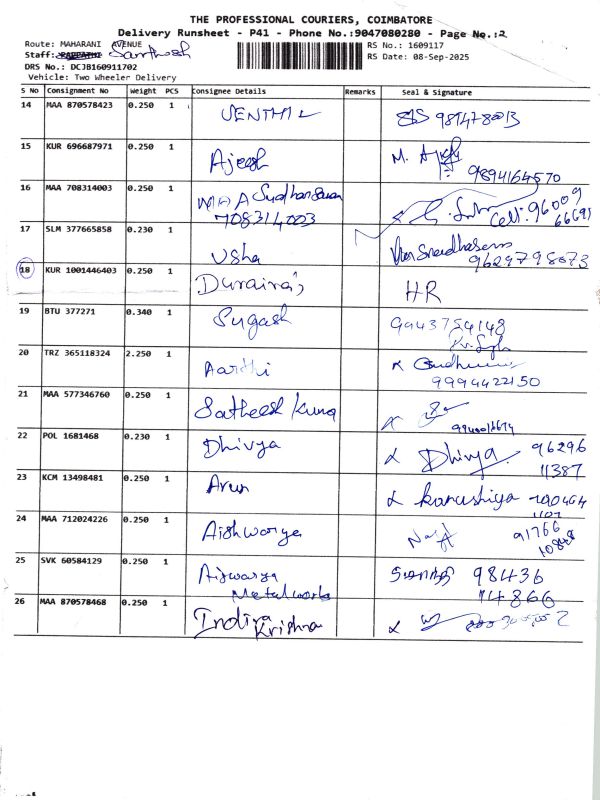 THE PROFESSIONAL COURIERS, COIMBATORE
Delivery Runsheet - P41 - Phone No.:9047080280 - Page No.:2
Route: MAHARANI AVENUE
RS No.: 1609117
Staff: Santhosh
RS Date: 08-Sep-2025
DRS No.: DCJB160911702
Vehicle: Two Wheeler Delivery
S No Consignment No Weight PCS Consignee Details Remarks Seal & Signature
14 MAA 870578423 0.250 1 SENTHIL
15 KUR 696687971 0.250 1 Ajeesh M.
9894164570
16 MAA 708314003 0.250 1 MAA Sudharsan Cell: 96009
708314003 66691
17 SLM 377665858 0.230 1 Usha
9629798073
18 KUR 1001446403 0.250 1 Durairaj HR
19 BTU 377271 0.340 1 Sugash 9943754148
20 TRZ 365118324 2.250 1 Aarthi
9994422150
21 MAA 577346760 0.250 1 Satheesh Kumar
22 POL 1681468 0.230 1 Dhivya Dhivya 96296
11387
23 KCM 13498481 0.250 1 Arun Karushiya
24 MAA 712024226 0.250 1 Aishwarya 91766
10848
25 SVK 60584129 0.250 1 Aiswarya 98436
Metal works 74866
26 MAA 870578468 0.250 1 Indira
Krishna